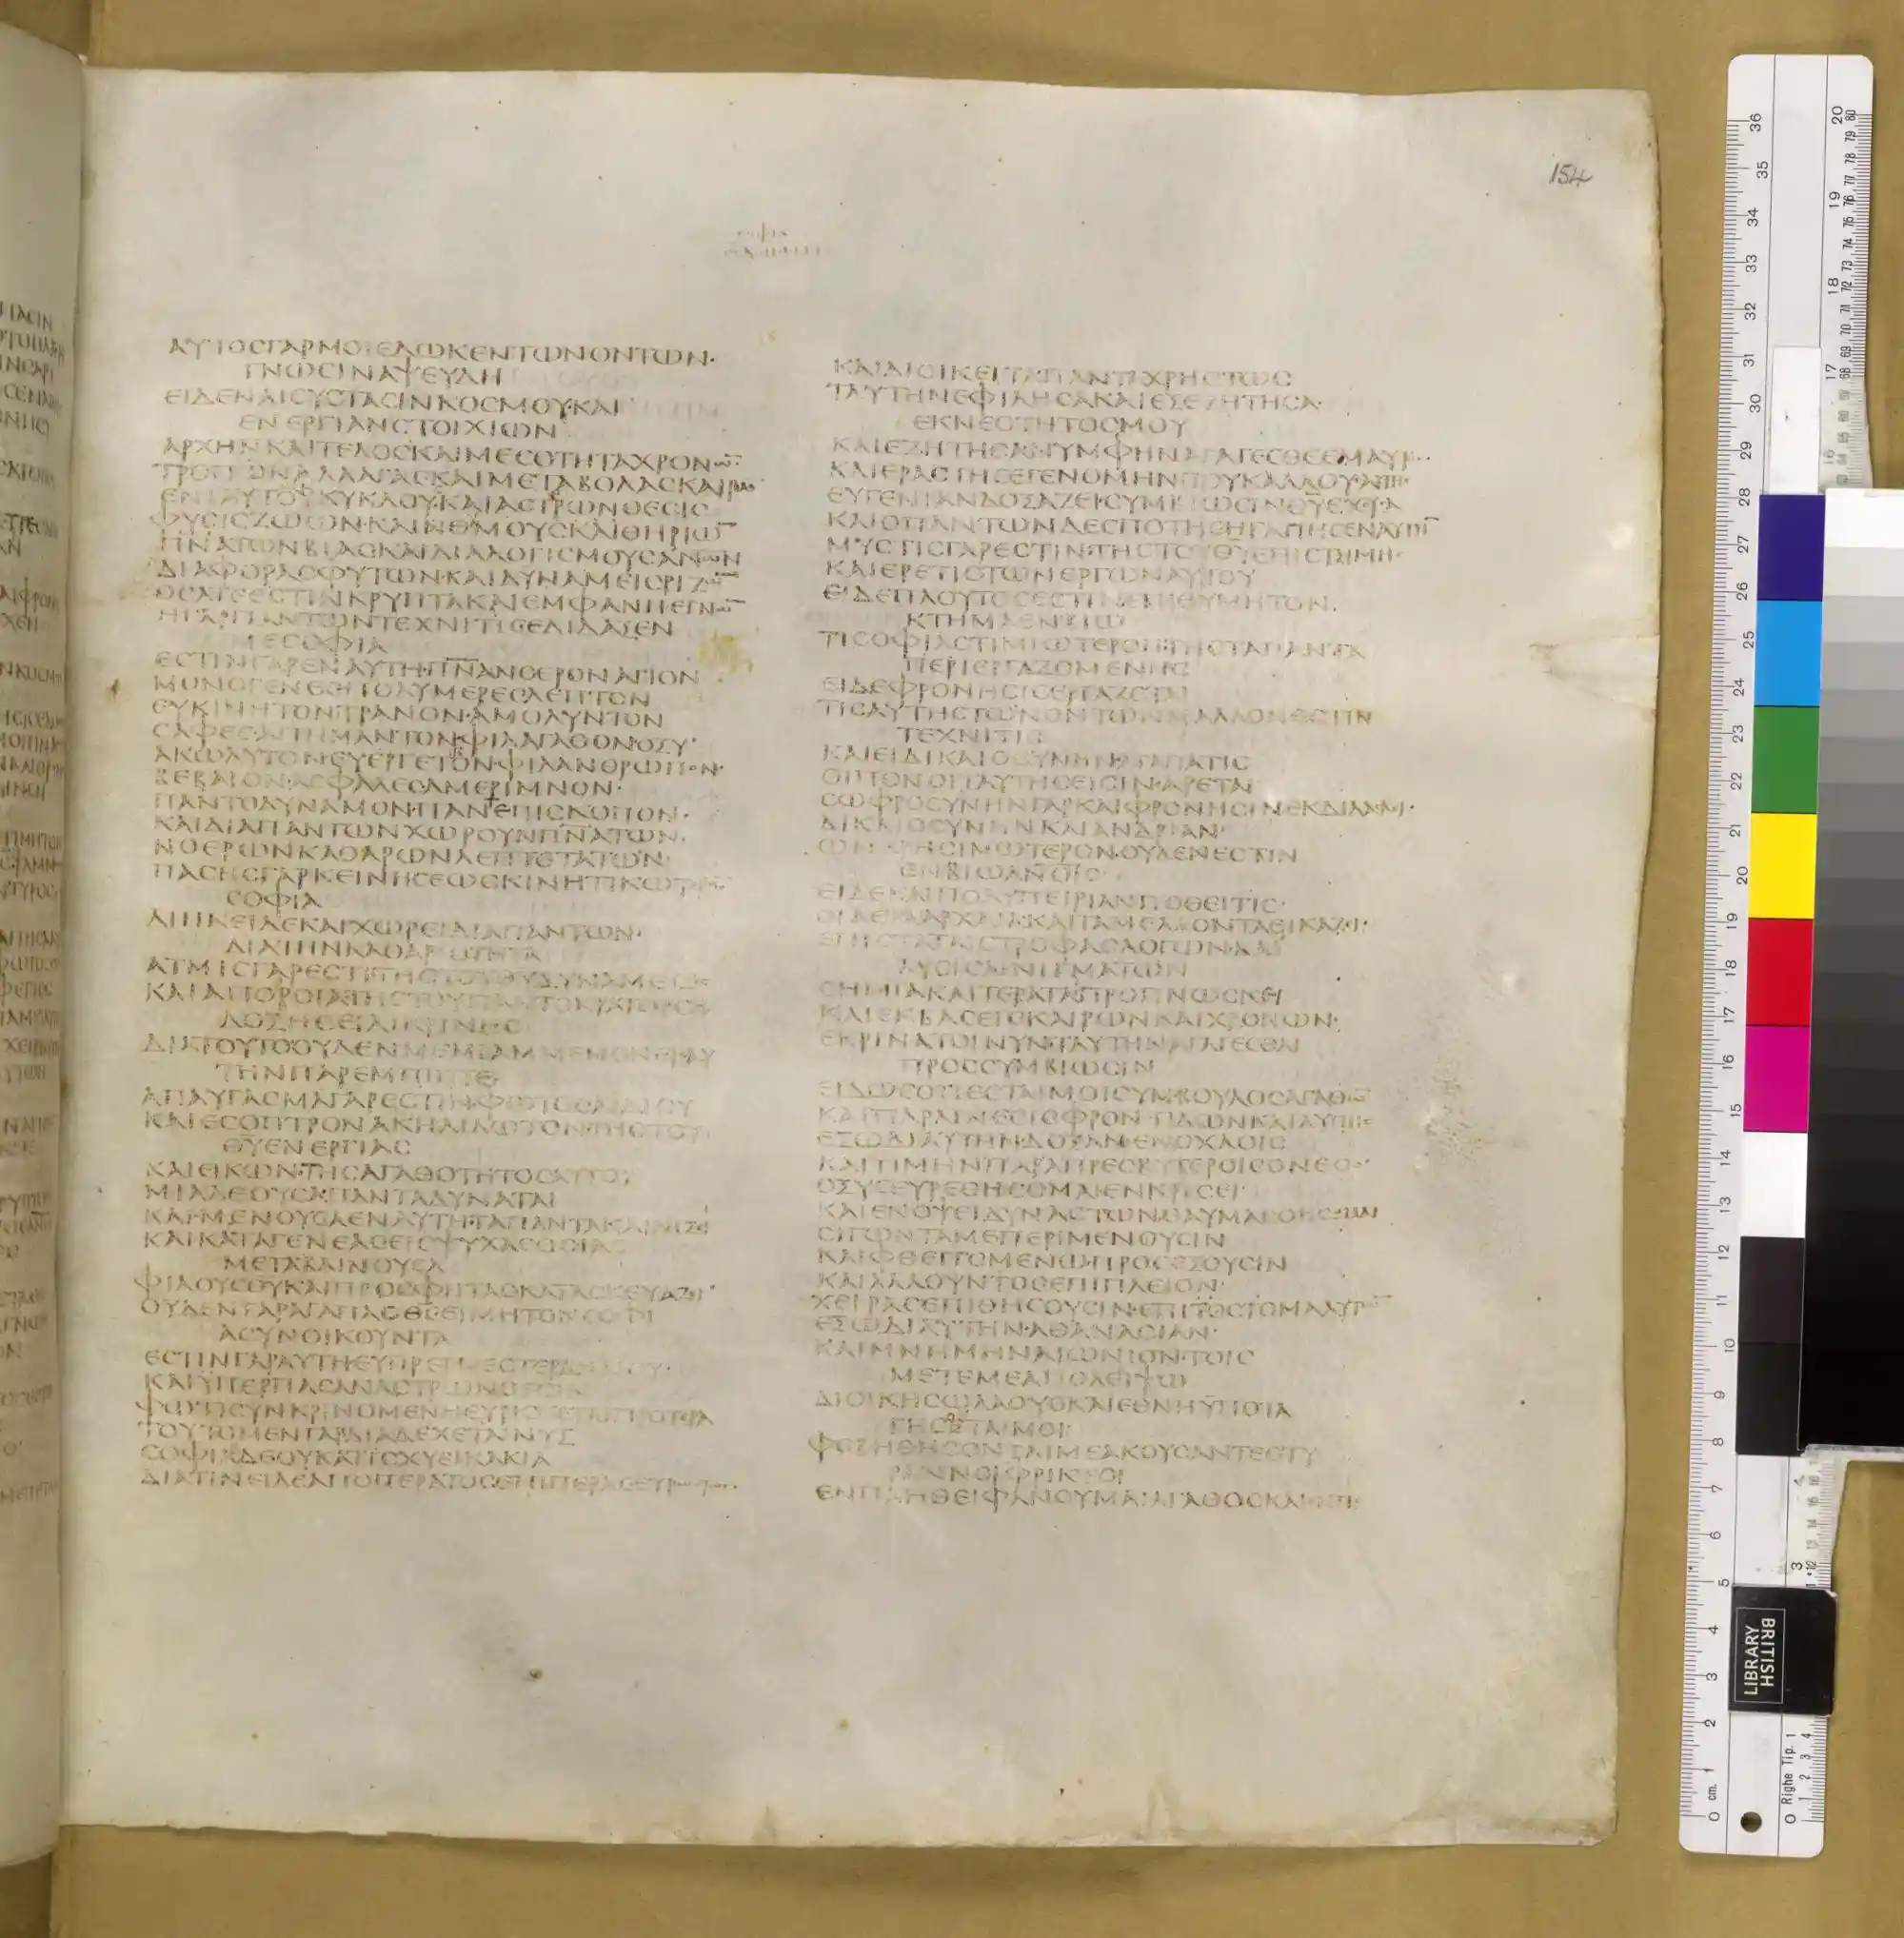 154
ΣΟΦΙΑ
ΑΥΤΟΣΓΑΡΜΟΙΕΔΩΚΕΝΤΩΝΟΝΤΩΝ·
ΓΝΩΣΙΝΑΨΕΥΔΗ
ΕΙΔΕΝΑΙΣΥΣΤΑΣΙΝΚΟΣΜΟΥΚΑΙ
ΕΝΕΡΓΙΑΝΣΤΟΙΧΙΩΝ
ΑΡΧΗΝΚΑΙΤΕΛΟΣΚΑΙΜΕΣΟΤΗΤΑΧΡΟΝΩ̅
ΤΡΟΠΩΝΑΛΛΑΓΑΣΚΑΙΜΕΤΑΒΟΛΑΣΚΑΙΡΩ̅
ΕΝΙΑΥΤΟΥΚΥΚΛΟΥΚΑΙΑΣΤΡΩΝΘΕΣΙΣ
ΦΥΣΙΣΖΩΩΝ·ΚΑΙΘΥΜΟΥΣΚΑΙΘΗΡΙΩ̅
ΠΝΑΤΩΝΒΙΑΣΚΑΙΔΙΑΛΟΓΙΣΜΟΥΣΑΝΩΝ
ΔΙΑΦΟΡΑΣΦΥΤΩΝ·ΚΑΙΔΥΝΑΜΕΙΣΡΙΖΩ̅
ΟΣΑΤΕΕΣΤΙΝΚΡΥΠΤΑΚΑΙΕΜΦΑΝΗΕΓΝΩ̅
ΗΓΑΡΠΑΝΤΩΝΤΕΧΝΙΤΙΣΕΔΙΔΑΞΕΝ
ΜΕΣΟΦΙΑ
ΕΣΤΙΝΓΑΡΕΝΑΥΤΗ·ΠΝΑΝΟΕΡΟΝΑΓΙΟΝ
ΜΟΝΟΓΕΝΕΣΠΟΛΥΜΕΡΕΣΛΕΠΤΟΝ
ΕΥΚΙΝΗΤΟΝ·ΤΡΑΝΟΝ·ΑΜΟΛΥΝΤΟΝ
ΣΑΦΕΣ·ΑΠΗΜΑΝΤΟΝ·ΦΙΛΑΓΑΘΟΝ·ΟΞΥ·
ΑΚΩΛΥΤΟΝ·ΕΥΕΡΓΕΤΟΝ·ΦΙΛΑΝΘΡΩΠΟΝ·
ΒΕΒΑΙΟΝ·ΑΣΦΑΛΕΣΑΜΕΡΙΜΝΟΝ·
ΠΑΝΤΟΔΥΝΑΜΟΝ·ΠΑΝΕΠΙΣΚΟΠΟΝ·
ΚΑΙΔΙΑΠΑΝΤΩΝΧΩΡΟΥΝΠΝΑΤΩΝ·
ΝΟΕΡΩΝΚΑΘΑΡΩΝΛΕΠΤΟΤΑΤΩΝ·
ΠΑΣΗΣΓΑΡΚΕΙΝΗΣΕΩΣΚΙΝΗΤΙΚΩΤΕΡΟΝ
ΣΟΦΙΑ
ΔΙΗΚΕΙΔΕΚΑΙΧΩΡΕΙΔΙΑΠΑΝΤΩΝ·
ΔΙΑΤΗΝΚΑΘΑΡΟΤΗΤΑ
ΑΤΜΙΣΓΑΡΕΣΤΙΤΗΣΤΟΥΘΥΔΥΝΑΜΕΩΣ
ΚΑΙΑΠΟΡΟΙΑΤΗΣΤΟΥΠΑΝΤΟΚΡΑΤΟΡΟΣ
ΔΟΞΗΣΕΙΛΙΚΡΙΝΗΣ
ΔΙΑΤΟΥΤΟΟΥΔΕΝΜΕΜΙΑΜΜΕΝΟΝΕΙΣΑΥ
ΤΗΝΠΑΡΕΜΠΙΠΤΕΙ
ΑΠΑΥΓΑΣΜΑΓΑΡΕΣΤΙΝΦΩΤΟΣΑΙΔΙΟΥ
ΚΑΙΕΣΟΠΤΡΟΝΑΚΗΛΙΔΩΤΟΝ·ΤΗΣΤΟΥ
ΘΥΕΝΕΡΓΙΑΣ
ΚΑΙΕΙΚΩΝ·ΤΗΣΑΓΑΘΟΤΗΤΟΣΑΥΤΟΥ
ΜΙΑΔΕΟΥΣΑΠΑΝΤΑΔΥΝΑΤΑΙ
ΚΑΙΜΕΝΟΥΣΑΕΝΑΥΤΗ·ΤΑΠΑΝΤΑΚΑΙΝΙΖΕΙ
ΚΑΙΚΑΤΑΓΕΝΕΑΣΕΙΣΨΥΧΑΣΟΣΙΑΣ
ΜΕΤΑΒΑΙΝΟΥΣΑ
ΦΙΛΟΥΣΘΥΚΑΙΠΡΟΦΗΤΑΣΚΑΤΑΣΚΕΥΑΖΕΙ
ΟΥΔΕΝΓΑΡΑΓΑΠΑΟΘΣΕΙΜΗΤΟΝΣΟΦΙ
ΑΣΥΝΟΙΚΟΥΝΤΑ
ΕΣΤΙΝΓΑΡΑΥΤΗΕΥΠΡΕΠΕΣΤΕΡΑΗΛΙΟΥ·
ΚΑΙΥΠΕΡΠΑΣΑΝΑΣΤΡΩΝΘΕΣΙΝ
ΦΩΤΙΣΥΝΚΡΙΝΟΜΕΝΗΕΥΡΙΣΚΕΤΑΙΠΡΟΤΕΡΑ
ΤΟΥΤΟΜΕΝΓΑΡΔΙΑΔΕΧΕΤΑΙΝΥΞ
ΣΟΦΙΑΔΕΟΥΚΑΤΙΣΧΥΕΙΚΑΚΙΑ
ΔΙΑΤΙΝΕΙΔΕΑΠΟΠΕΡΑΤΟΣΕΠΙΠΕΡΑΣΕΥΡΩΣΤΩΣ·
ΚΑΙΔΙΟΙΚΕΙΤΑΠΑΝΤΑΧΡΗΣΤΩΣ
ΤΑΥΤΗΝΕΦΙΛΗΣΑΚΑΙΕΞΕΖΗΤΗΣΑ·
ΕΚΝΕΟΤΗΤΟΣΜΟΥ
ΚΑΙΕΖΗΤΗΣΑΝΥΜΦΗΝΑΓΑΓΕΣΘΕΕΜΑΥΤΩ
ΚΑΙΕΡΑΣΤΗΣΕΓΕΝΟΜΗΝΤΟΥΚΑΛΛΟΥΣΑΥΤΗΣ·
ΕΥΓΕΝΙΑΝΔΟΞΑΖΕΙΣΥΜΒΙΩΣΙΝΘΥΕΧΟΥΣΑ
ΚΑΙΟΠΑΝΤΩΝΔΕΣΠΟΤΗΣΗΓΑΠΗΣΕΝΑΥΤΗ̅
ΜΥΣΤΙΣΓΑΡΕΣΤΙΝ·ΤΗΣΤΟΥΘΥΕΠΙΣΤΗΜΗΣ·
ΚΑΙΕΡΕΤΙΣΤΩΝΕΡΓΩΝΑΥΤΟΥ
ΕΙΔΕΠΛΟΥΤΟΣΕΣΤΙΝΕΠΙΘΥΜΗΤΟΝ.
ΚΤΗΜΑΕΝΒΙΩ
ΤΙΣΟΦΙΑΣΤΙΜΙΩΤΕΡΟΝ·ΤΗΣΤΑΠΑΝΤΑ
ΠΕΡΙΕΡΓΑΖΟΜΕΝΗΣ
ΕΙΔΕΦΡΟΝΗΣΙΣΕΡΓΑΖΕΤΑΙ
ΤΙΣΑΥΤΗΣΤΩΝΟΝΤΩΝΜΑΛΛΟΝΕΣΤΙΝ
ΤΕΧΝΙΤΙΣ
ΚΑΙΕΙΔΙΚΑΙΟΣΥΝΗΝΑΓΑΠΑΤΙΣ
ΟΙΠΟΝΟΙΤΑΥΤΗΣΕΙΣΙΝ·ΑΡΕΤΑΙ
ΣΩΦΡΟΣΥΝΗΝΓΑΡΚΑΙΦΡΟΝΗΣΙΝΕΚΔΙΔΑΣΚΕΙ·
ΔΙΚΑΙΟΣΥΝΗΝΚΑΙΑΝΔΡΙΑΝ·
ΩΝΧΡΗΣΙΜΩΤΕΡΟΝ·ΟΥΔΕΝΕΣΤΙΝ
ΕΝΒΙΩΑΝΟΙΣ
ΕΙΔΕΚΑΙΠΟΛΥΠΕΙΡΙΑΝΠΟΘΕΙΤΙΣ·
ΟΙΔΕΤΑΑΡΧΑΙΑ·ΚΑΙΤΑΜΕΛΛΟΝΤΑΕΙΚΑΖΕΙ·
ΕΠΙΣΤΑΤΑΙΣΤΡΟΦΑΣΛΟΓΩΝ·ΚΑΙ
ΛΥΣΙΣΑΙΝΙΓΜΑΤΩΝ
ΣΗΜΙΑΚΑΙΤΕΡΑΤΑΠΡΟΓΙΝΩΣΚΕΙ
ΚΑΙΕΚΒΑΣΕΙΣΚΑΙΡΩΝΚΑΙΧΡΟΝΩΝ·
ΕΚΡΙΝΑΤΟΙΝΥΝΤΑΥΤΗΝΑΓΑΓΕΣΘΑΙ
ΠΡΟΣΣΥΜΒΙΩΣΙΝ
ΕΙΔΩΣΟΤΙΕΣΤΑΙΜΟΙΣΥΜΒΟΥΛΟΣΑΓΑΘΩ̅
ΚΑΙΠΑΡΑΙΝΕΣΙΣΦΡΟΝΤΙΔΩΝΚΑΙΛΥΠΗΣ
ΕΞΩΔΙΑΥΤΗΝ·ΔΟΞΑΝ·ΕΝΟΧΛΟΙΣ
ΚΑΙΤΙΜΗΝΠΑΡΑΠΡΕΣΒΥΤΕΡΟΙΣΟΝΕΟΣ·
ΟΞΥΣΕΥΡΕΘΗΣΟΜΑΙ·ΕΝΚΡΙΣΕΙ·
ΚΑΙΕΝΟΨΕΙΔΥΝΑΣΤΩΝΘΑΥΜΑΣΘΗΣΟΜΑΙ
ΣΙΓΩΝΤΑΜΕΠΕΡΙΜΕΝΟΥΣΙΝ
ΚΑΙΦΘΕΓΓΟΜΕΝΩ·ΠΡΟΣΕΞΟΥΣΙΝ
ΚΑΙΛΑΛΟΥΝΤΟΣΕΠΙΠΛΕΙΟΝ·
ΧΕΙΡΑΣΕΠΙΘΗΣΟΥΣΙΝ·ΕΠΙΤΟΣΤΟΜΑΑΥΤΩ̅
ΕΞΩΔΙΑΥΤΗΝ·ΑΘΑΝΑΣΙΑΝ·
ΚΑΙΜΝΗΜΗΝΑΙΩΝΙΟΝ·ΤΟΙΣ
ΜΕΤΕΜΕΑΠΟΛΕΙΨΩ
ΔΙΟΙΚΗΣΩΛΑΟΥΣΚΑΙΕΘΝΗΥΠΟΤΑ
ΓΗΣΕΤΑΙΜΟΙ
ΦΟΒΗΘΗΣΟΝΤΑΙΜΕΑΚΟΥΣΑΝΤΕΣΤΥ
ΡΑΝΝΟΙΦΡΙΚΤΟΙ
ΕΝΠΛΗΘΕΙΦΑΝΟΥΜΑΙΑΓΑΘΟΣΚΑΙ
BRITISH
LIBRARY